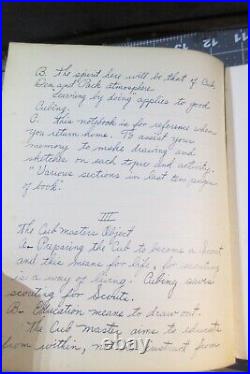 B. The spirit here will be that of Cub,
Den, and Pack atmosphere.
"Learning by doing" applies to good
Cubing.
C. This notebook is for reference when
you return home. To assist your
memory to make drawings and
sketches on each topic and activity.
"Various sections in last ten pages
of book."
III
The Cub masters Object
A. Preparing the Cub to become a Scout
and this means for life, for scouting
is a way of living! Cubing saves
scouting for Scouts.
B. Education means to draw out.
The Cub Master aims to educate
from within, not instruct from